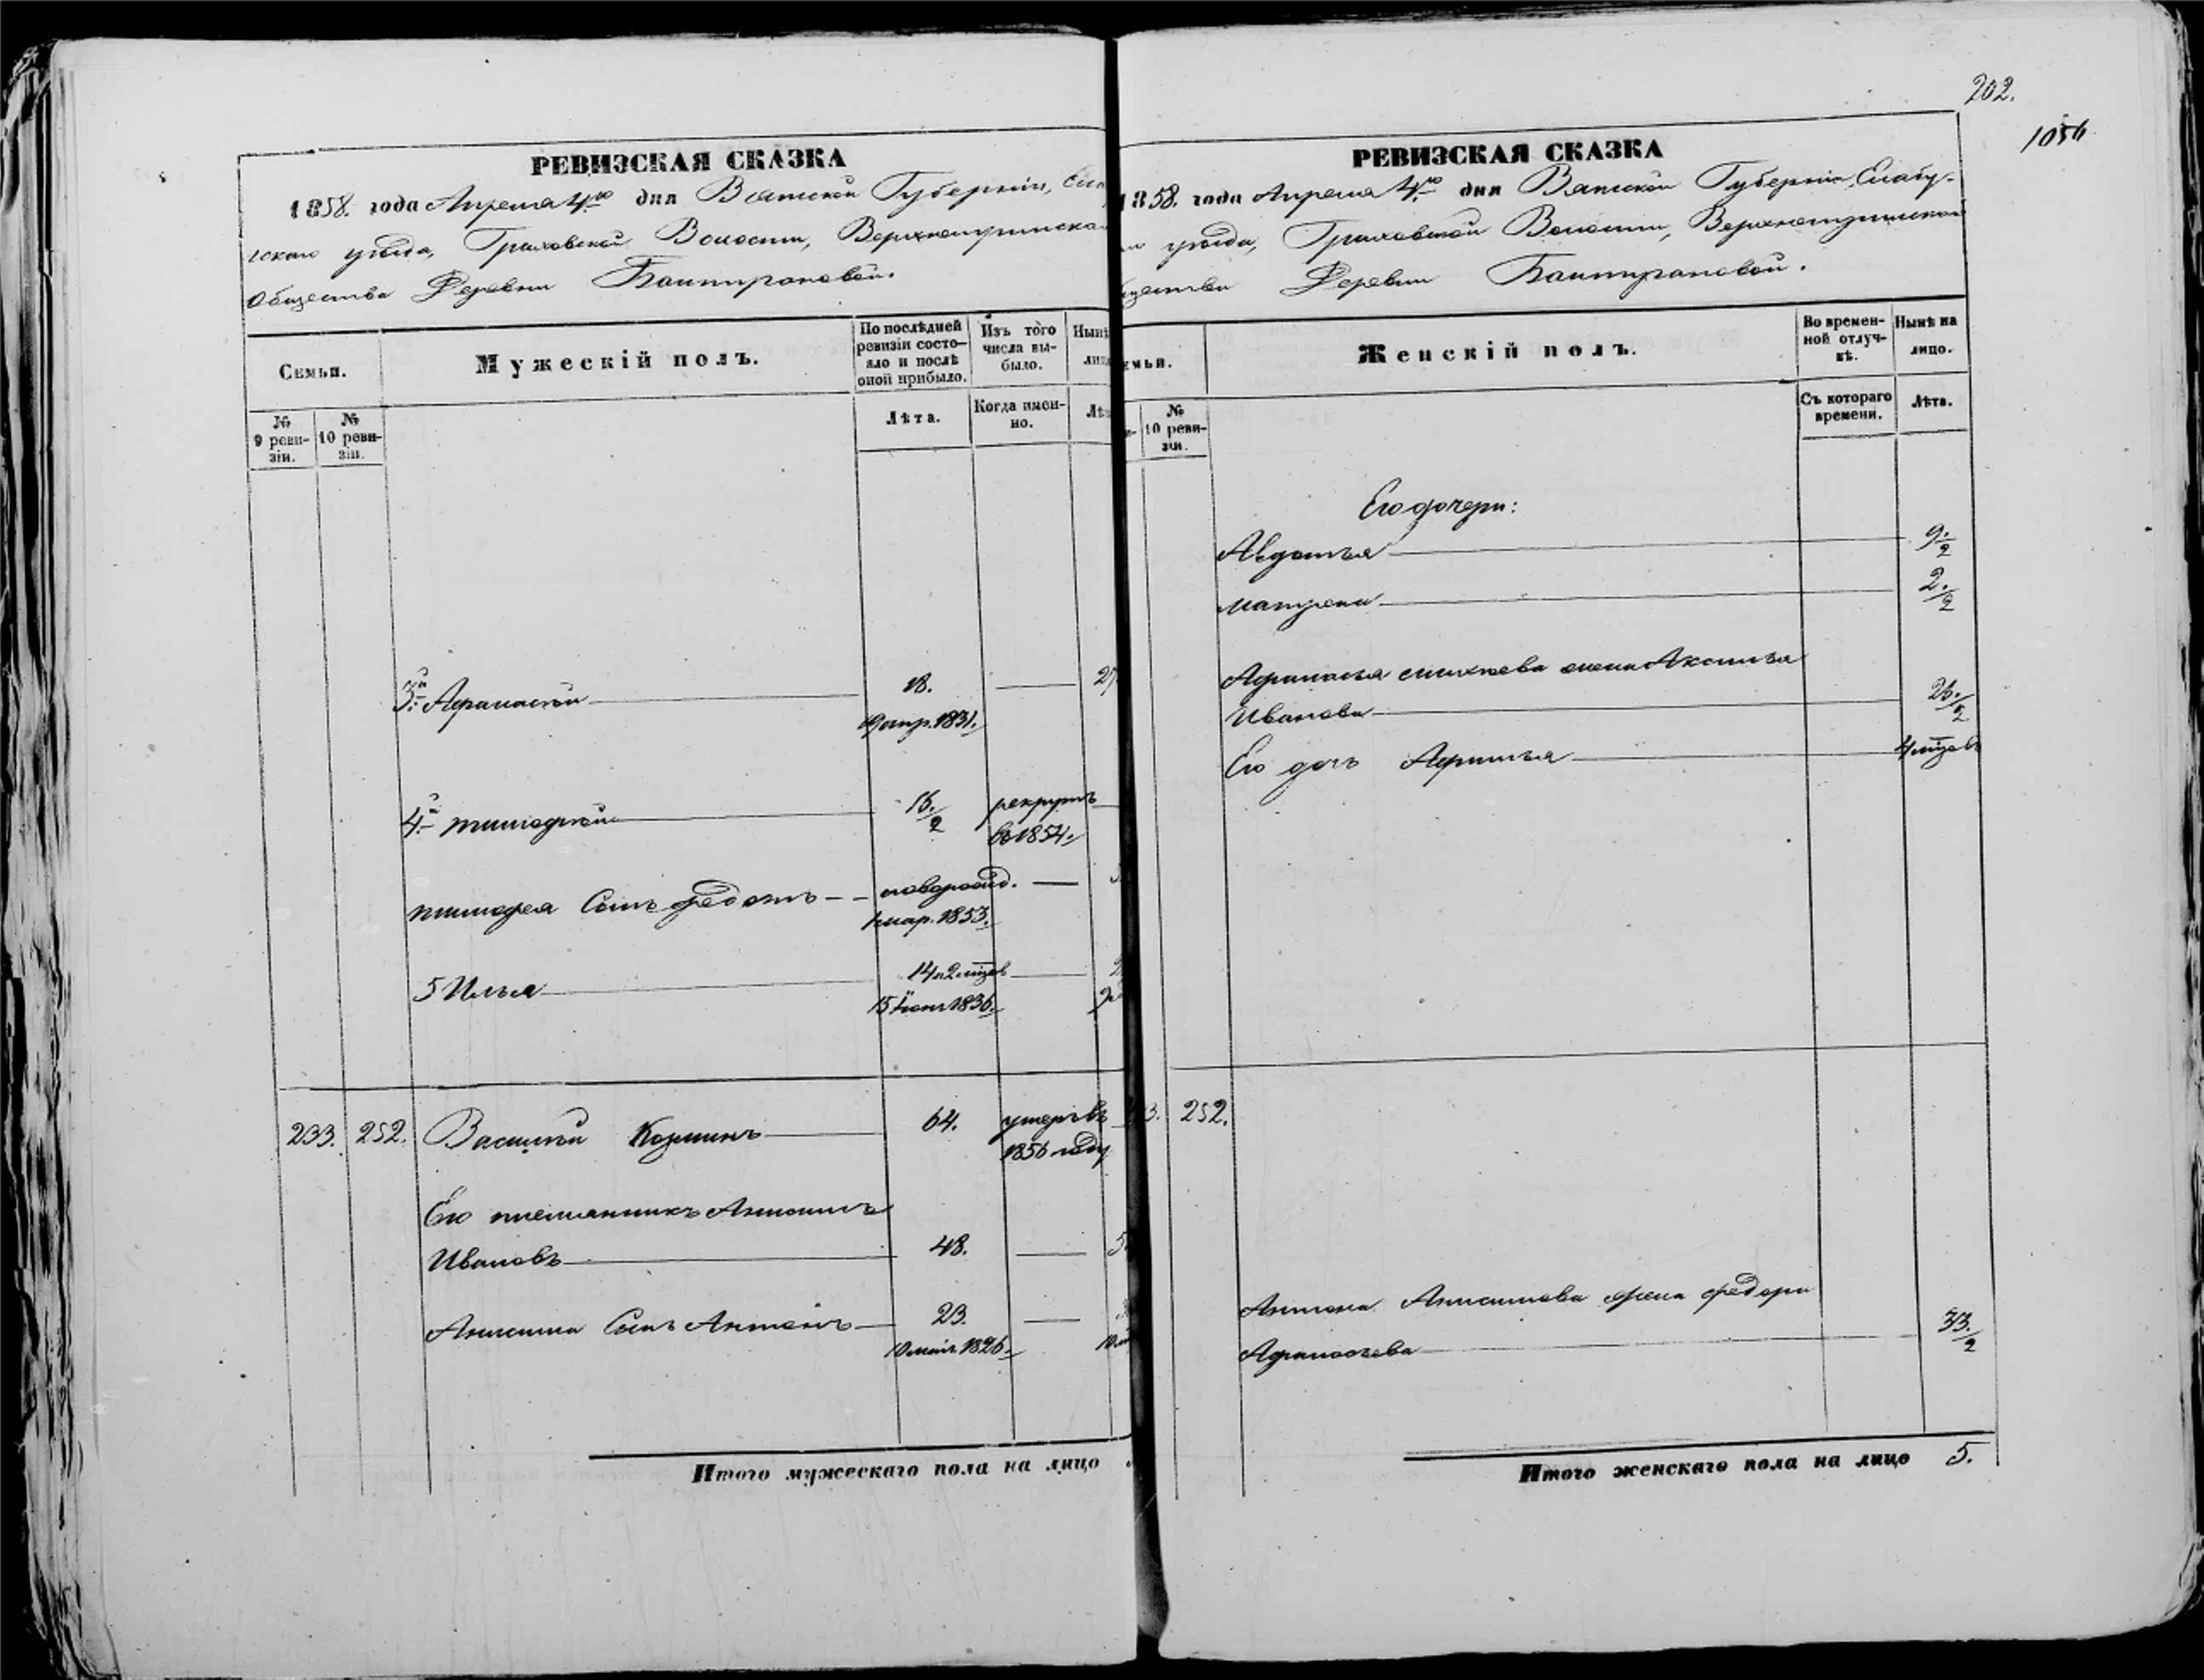 РЕВИЗСКАЯ СКАЗКА
1858. года Апреля 4го дня Вятской Губернiи, Ела
уѣзда, Граховской Волости, Верхне
Общества Деревни
Семьи.
Мужескiй полъ.
По послѣдней ревизiи состояло и послѣ оной прибыло.
Изъ того числа выбыло.
Нынѣ
№ 9 ревизiи.
№ 10 ревизiи.
Лѣта.
Когда именно.
3.й Афанасiй 18. 27
1831.
4.й тимофѣй 15. 2 рекрутъ
въ 1854.
тимофея Сынъ федотъ новорожд.
мар. 1853.
5 Илья 14 и 2 мѣцев
15 Iюня 1836.
233. 252. Василiй Козминъ 64. умеръ въ
1856 году
Его племянникъ Анисимъ
Ивановъ 48.
Анисима Сынъ Антонъ 23.
10 маiя 1826.
Итого мужескаго пола на лицо
202.
1056
РЕВИЗСКАЯ СКАЗКА
1858. года Апреля 4го дня Вятской Губернiи, Елабу-
уѣзда, Граховской Волости, Верхне
Деревни
Женскiй полъ.
Во временной отлучкѣ.
Нынѣ на лицо.
№ 10 ревизiи.
Съ котораго времени.
Лѣта.
Его дочери:
Авдотья 9. 2
матрена 2. 2
Афанасья жена Аксинья
Иванова 26. 2
Его дочь Афимья 4 мѣцевъ
252.
Антона Анисимова жена федора
Афанасьева 33. 2
Итого женскаго пола на лицо 5.